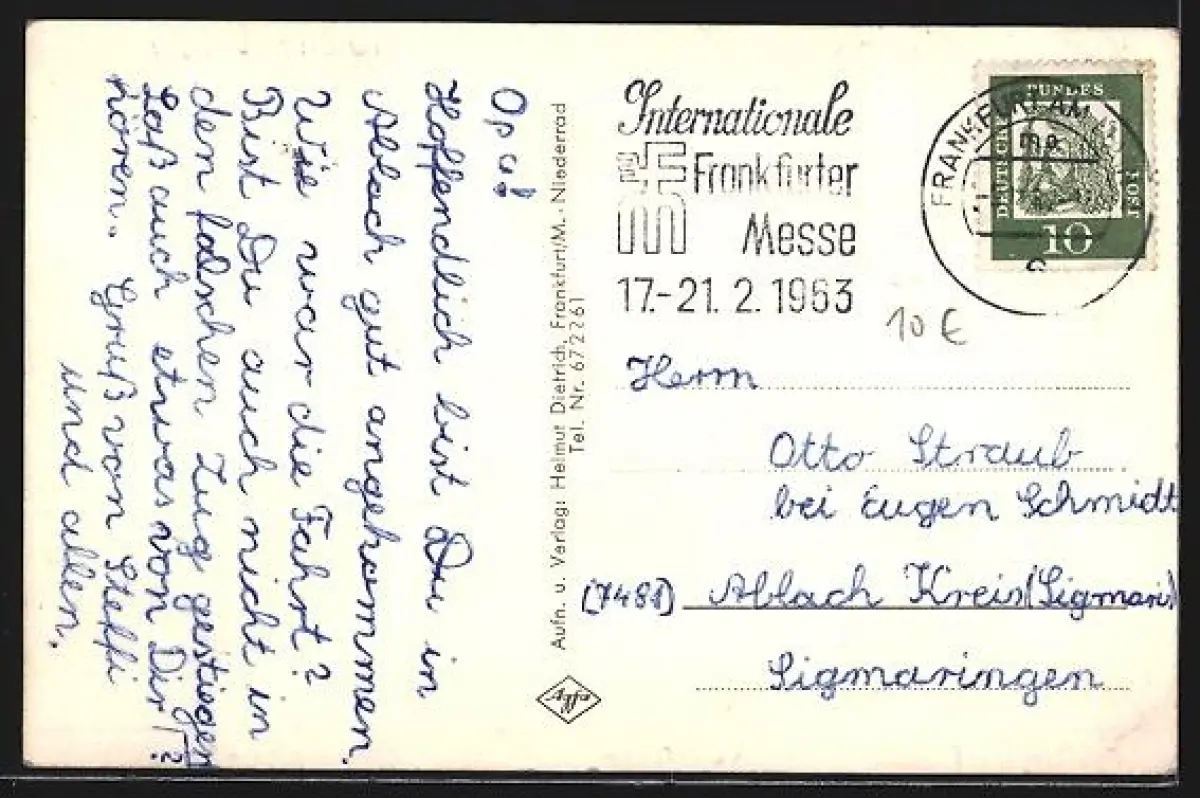 Opa!
Hoffendlich bist Du in
Ablach gut angekommen.
Wie war die Fahrt?
Bist Du auch nicht in
dem falschen Zug gestiegen?
Laß auch etwas von Dir
hören. Gruß von Steffi
und allen.
Aufn. u. Verlag: Helmut Dietrich, Frankfurt/M.-Niederrad
Tel. Nr. 672261
Internationale
Frankfurter
Messe
17.-21. 2. 1963
FRANKFURT AM
DEUTSCHE
BUNDES
POST
10
10 €
Herrn
Otto Straub
bei Eugen Schmidt
(7481) Ablach Kreis (Sigmari)
Sigmaringen